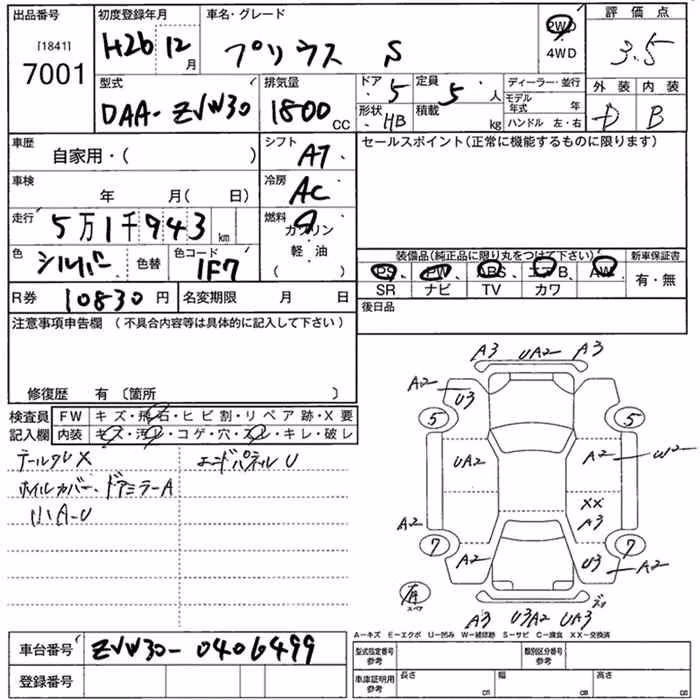 出品番号 初度登録年月 車名・グレード 評価点
[1841]
7001
H26 12月 プリウス S 2WD 4WD 3.5
型式 排気量 ドア 定員 ディーラー・並行 外装 内装
DAA-ZVW30 1800CC 5 5人 モデル年式 年 D B
形状 HB 積載 kg ハンドル 左・右
車歴 シフト セールスポイント(正常に機能するものに限ります)
自家用・( ) AT
車検 冷房
年 月( 日) AC
走行 燃料
5万1千943km ガソリン
色 色コード 軽・油
シルバー 色替 1F7 ( )
装備品(純正品に限り丸をつけて下さい) 新車保証書
PS PW ABS エアB AW 有・無
SR ナビ TV カワ
R券 10830円 名変期限 月 日 後日品
注意事項申告欄 (不具合内容等は具体的に記入して下さい)
修復歴 有〔箇所 〕
検査員 FW キズ・飛石・ヒビ割・リペア跡・X要
記入欄 内装 キズ・汚レ・コゲ・穴・スレ・キレ・破レ
テールクレX エンドパネルU
ホイルカバー、ドアミラーA
小A-U
A3 UA2 A3
A2 U3
5 5
UA2 A2 W2
XX
A3
A2
7 7
A2 U3 A2
有
スペア
A3 U3A2 UA3
A－キズ E－エクボ U－凹み W－補修跡 S－サビ C－腐食 XX－交換済
車台番号 ZVW30-0406499
型式指定番号 参考 類別区分番号 参考
登録番号 車庫証明用 参考 長さ cm 幅 cm 高さ cm